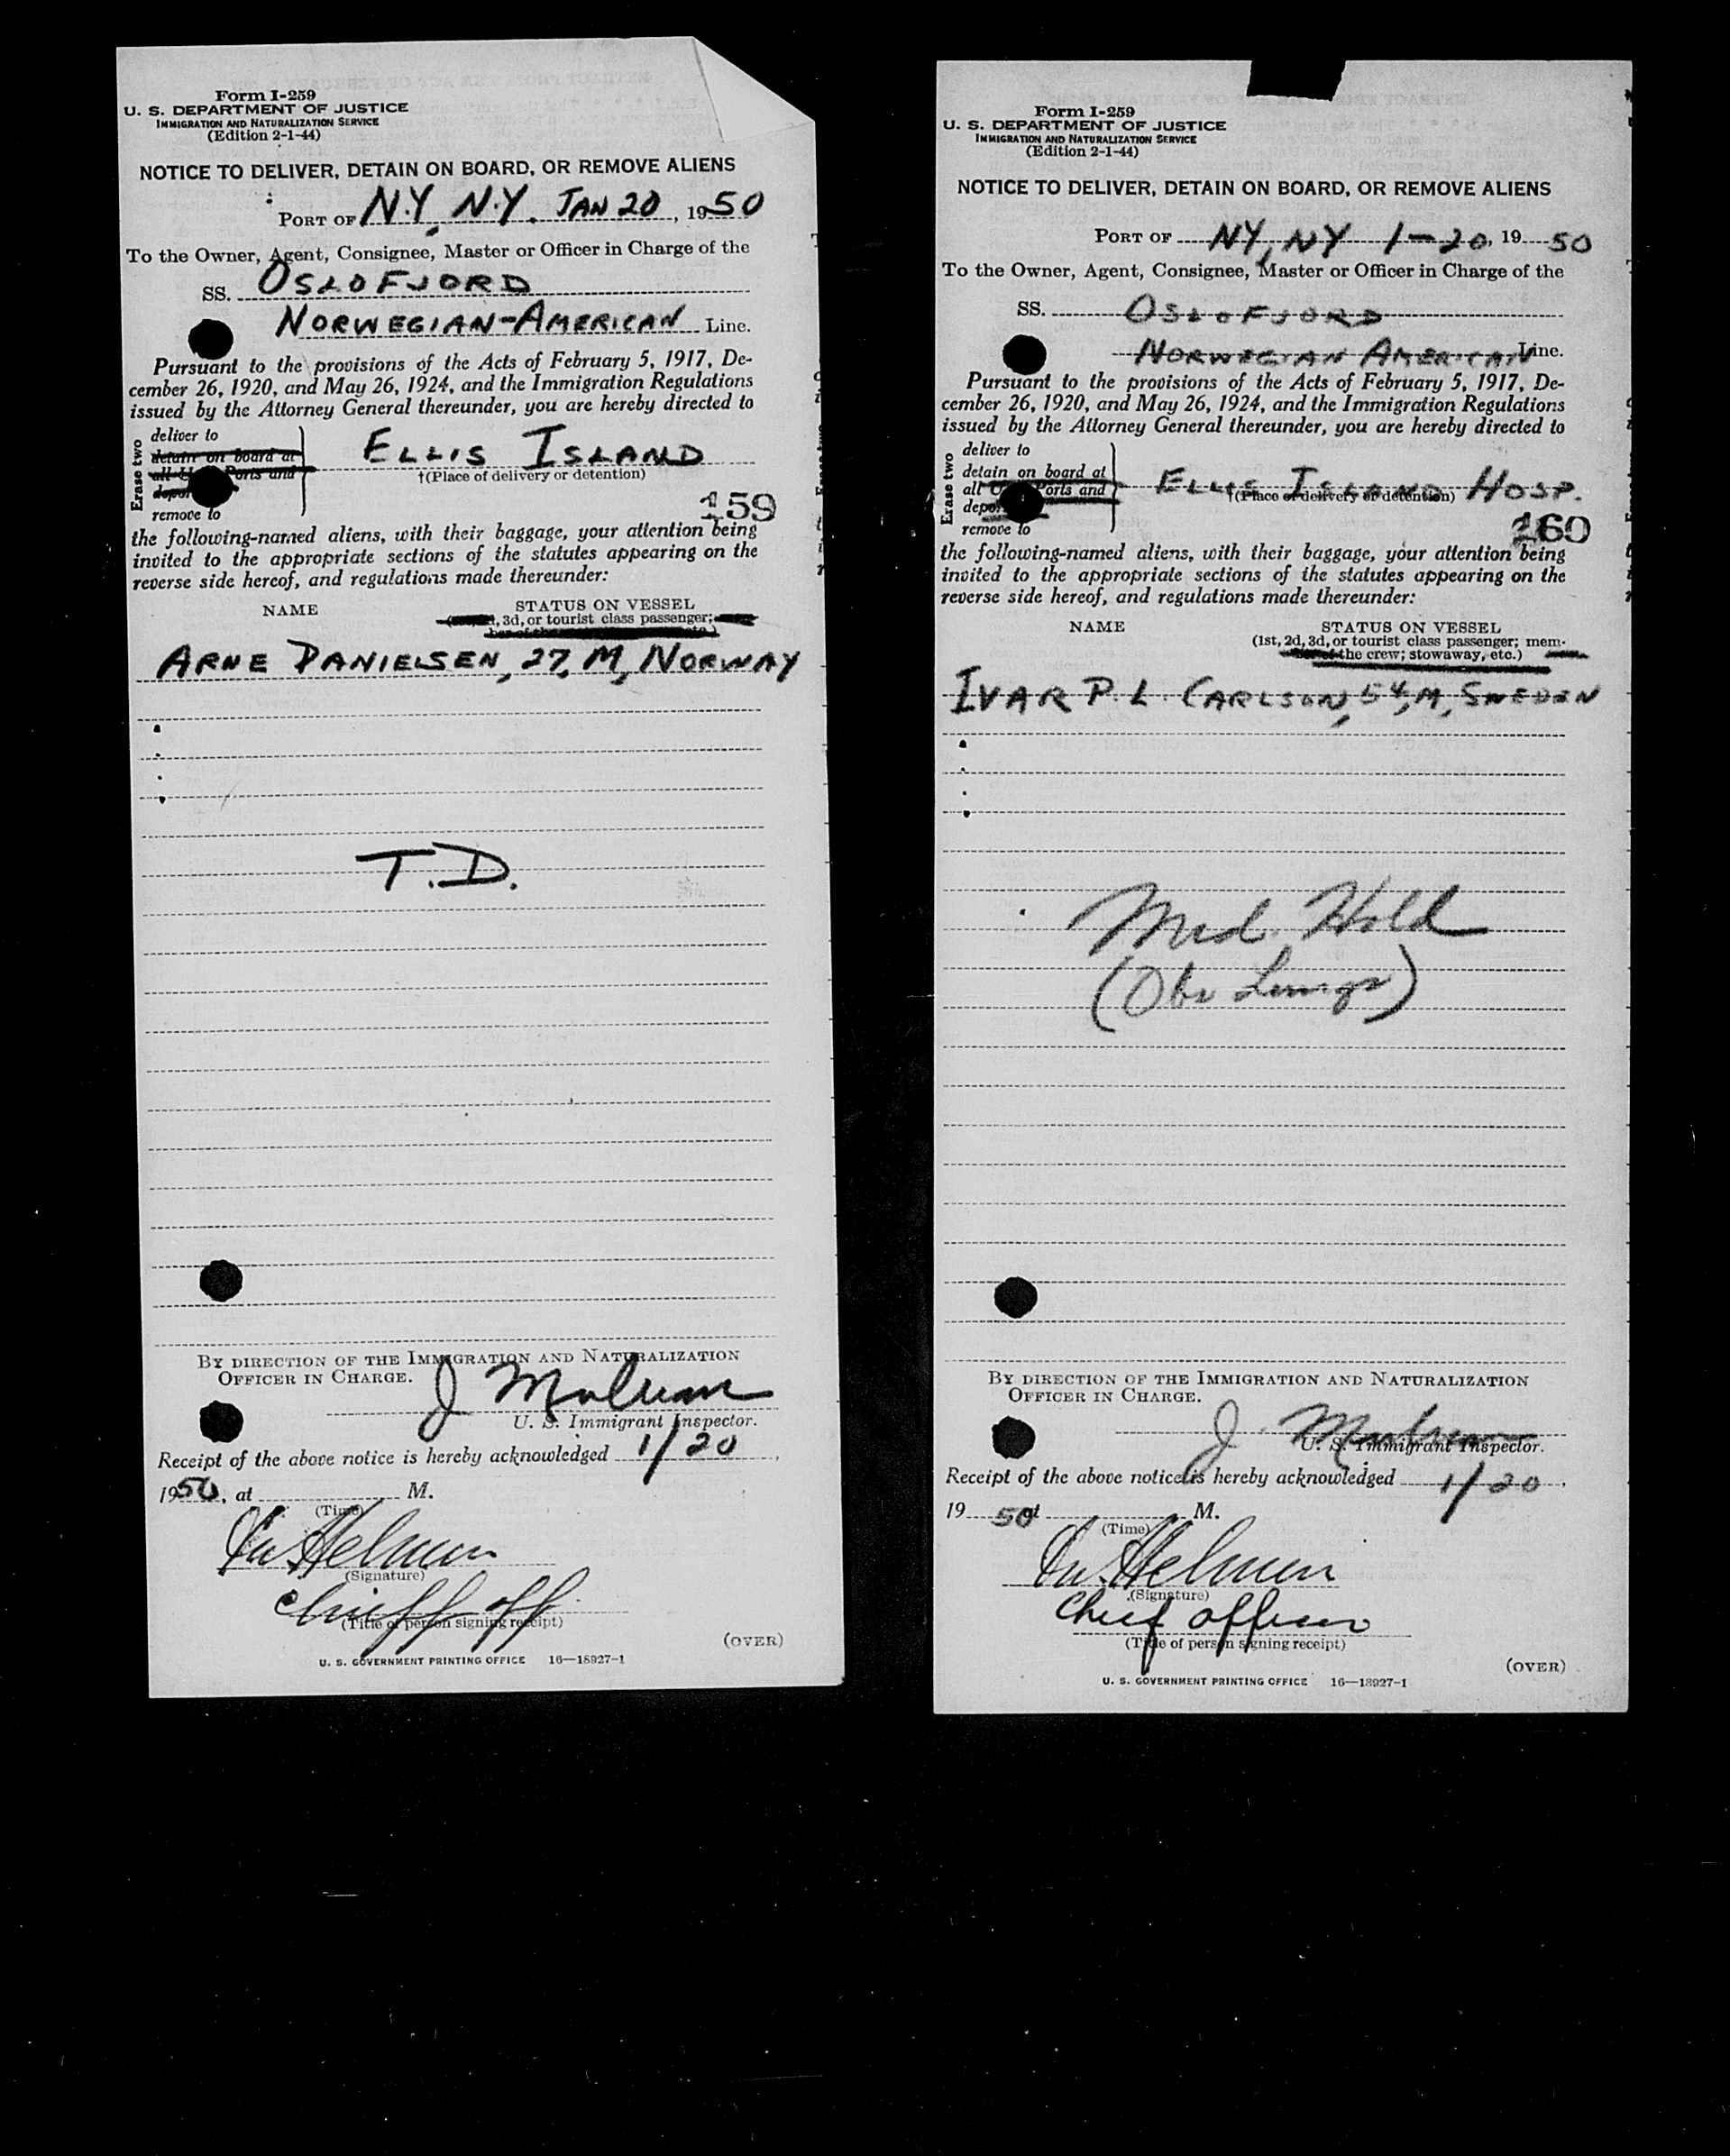 Form I-259
U. S. DEPARTMENT OF JUSTICE
IMMIGRATION AND NATURALIZATION SERVICE
(Edition 2-1-44)
NOTICE TO DELIVER, DETAIN ON BOARD, OR REMOVE ALIENS
PORT OF N.Y, N.Y. JAN 20, 1950
To the Owner, Agent, Consignee, Master or Officer in Charge of the
SS. OSLOFJORD
NORWEGIAN-AMERICAN Line.
Pursuant to the provisions of the Acts of February 5, 1917, De-
cember 26, 1920, and May 26, 1924, and the Immigration Regulations
issued by the Attorney General thereunder, you are hereby directed to
Erase two
deliver to
detain on board at
all U Ports and
depor
remove to
ELLIS ISLAND
†(Place of delivery or detention)
159
the following-named aliens, with their baggage, your attention being
invited to the appropriate sections of the statutes appearing on the
reverse side hereof, and regulations made thereunder:
NAME STATUS ON VESSEL
3d, or tourist class passenger;
ber of the
ARNE DANIELSEN, 27, M, NORWAY
T.D.
BY DIRECTION OF THE IMMIGRATION AND NATURALIZATION
OFFICER IN CHARGE.
J
U. S. Immigrant Inspector.
Receipt of the above notice is hereby acknowledged 1/20,
1950, at M.
(Time)
(Signature)
Chief off.
(Title of person signing receipt)
(OVER)
U. S. GOVERNMENT PRINTING OFFICE 16—18927-1
Form I-259
U. S. DEPARTMENT OF JUSTICE
IMMIGRATION AND NATURALIZATION SERVICE
(Edition 2-1-44)
NOTICE TO DELIVER, DETAIN ON BOARD, OR REMOVE ALIENS
PORT OF NY, NY 1-20, 19 50
To the Owner, Agent, Consignee, Master or Officer in Charge of the
SS. OSLOFJORD
NORWEGIAN AMERICAN Line.
Pursuant to the provisions of the Acts of February 5, 1917, De-
cember 26, 1920, and May 26, 1924, and the Immigration Regulations
issued by the Attorney General thereunder, you are hereby directed to
Erase two
deliver to
detain on board at
all U Ports and
depor
remove to
ELLIS ISLAND HOSP.
†(Place of delivery or detention)
160
the following-named aliens, with their baggage, your attention being
invited to the appropriate sections of the statutes appearing on the
reverse side hereof, and regulations made thereunder:
NAME STATUS ON VESSEL
(1st, 2d, 3d, or tourist class passenger; mem-
ber of the crew; stowaway, etc.)
IVAR P. L. CARLSON, 54, M, SWEDEN
Med. Hold
(Obs Lungs)
BY DIRECTION OF THE IMMIGRATION AND NATURALIZATION
OFFICER IN CHARGE.
J.
U. S. Immigrant Inspector.
Receipt of the above notice is hereby acknowledged 1/20,
19 50 at M.
(Time)
(Signature)
Chief officer
(Title of person signing receipt)
(OVER)
U. S. GOVERNMENT PRINTING OFFICE 16—18927-1